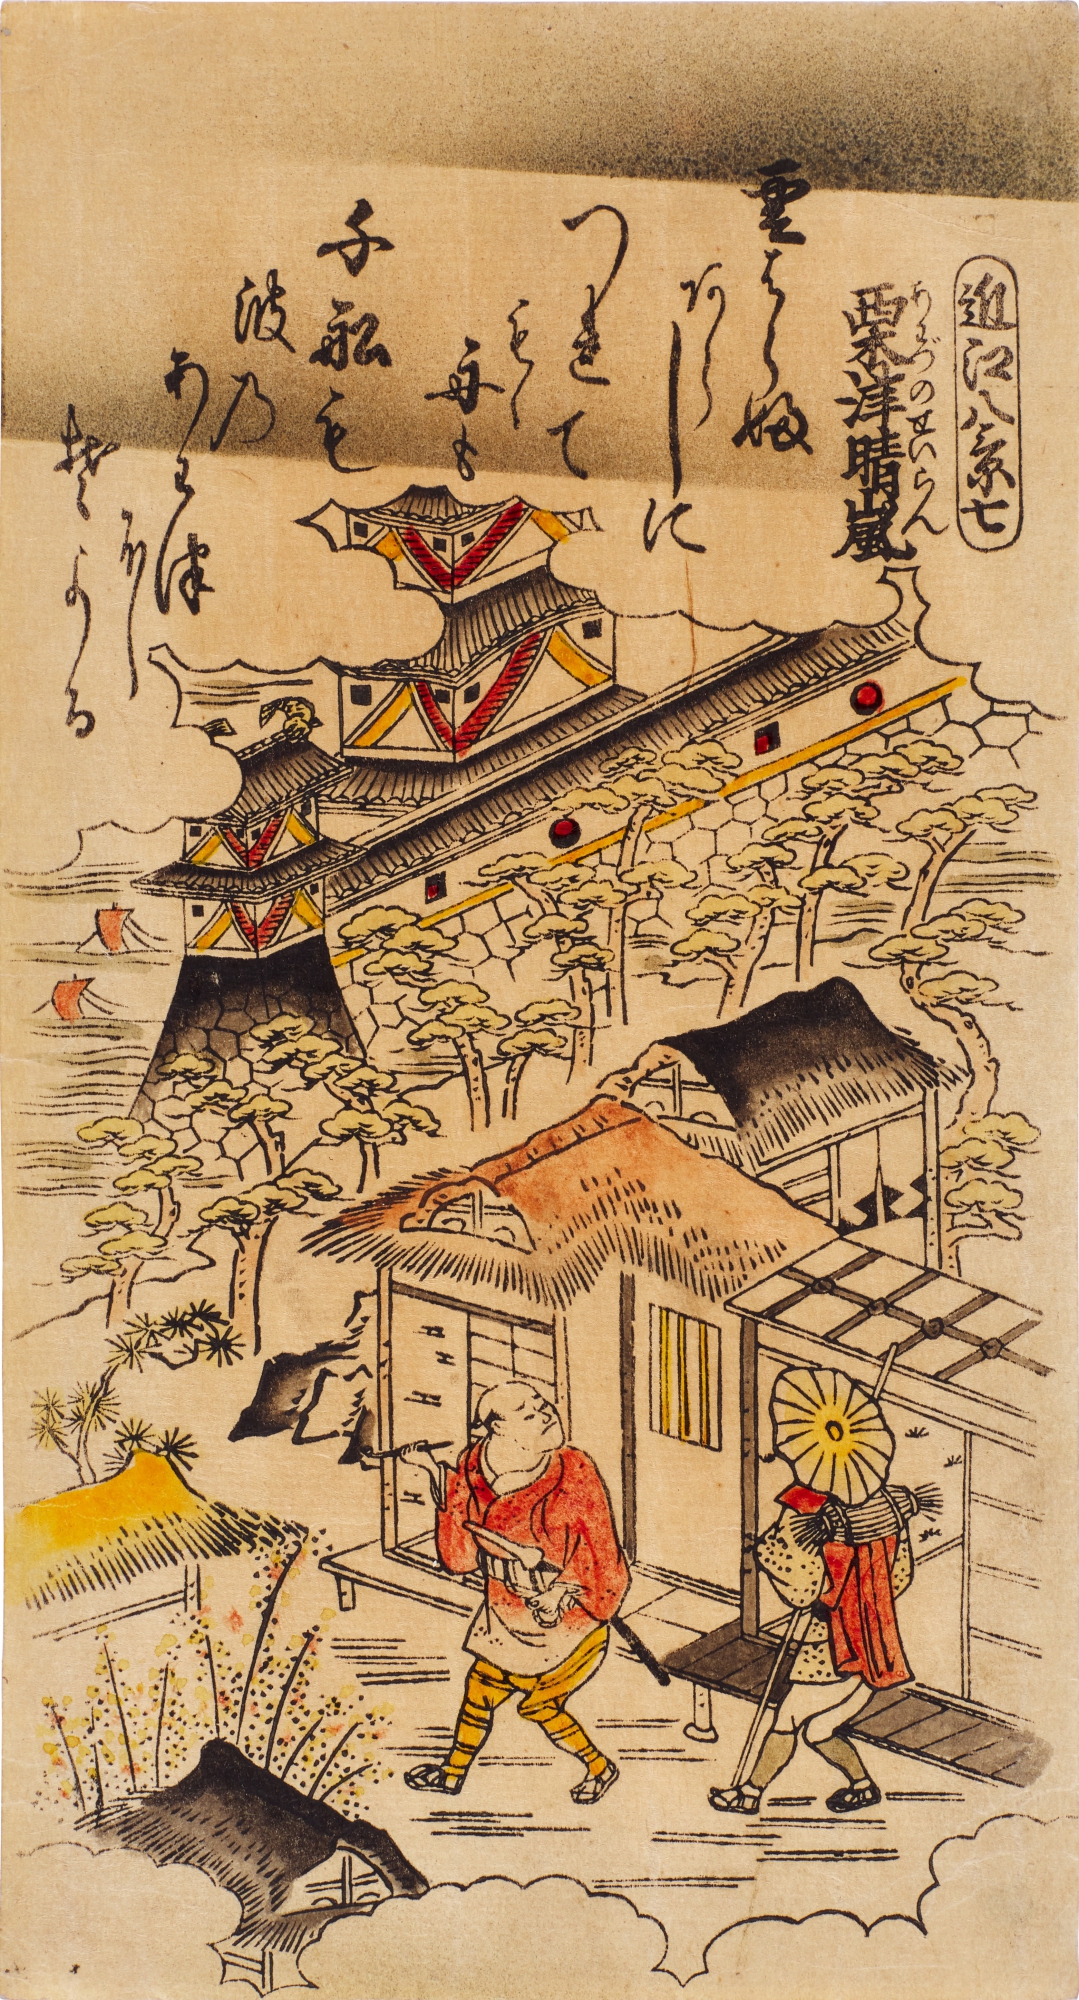 近江八景七
粟津晴嵐
あわづのせいらん
雲はらふ
あらしに
つれて
もゝ
舟も
千船も
波乃
あわ津
に
そよる